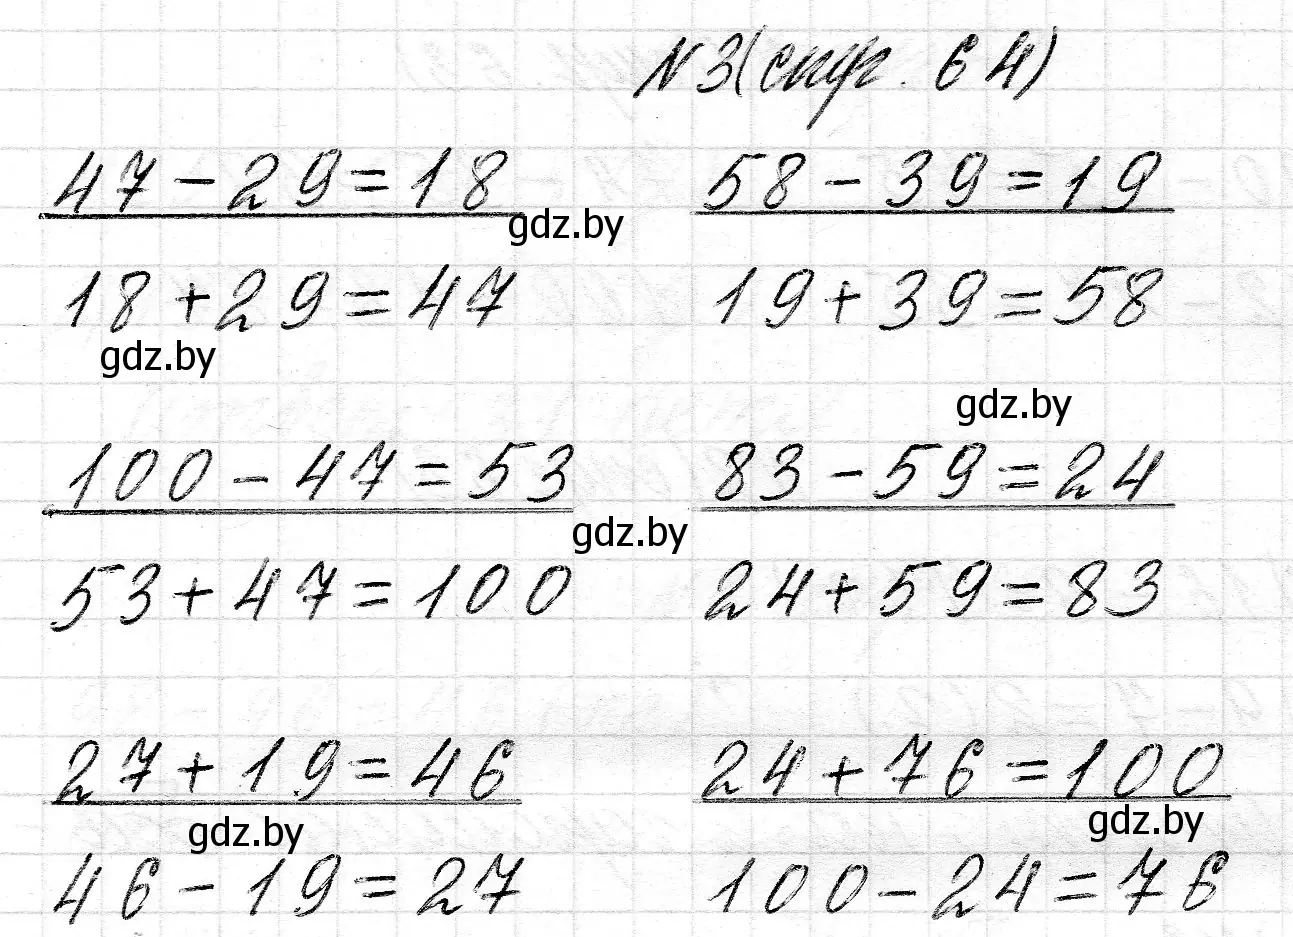 №3(стр. 64)
47-29=18 58-39=19
gdz.by
18+29=47 19+39=58
gdz.by
gdz.by
100-47=53 83-59=24
gdz.by
53+47=100 24+59=83
27+19=46 24+76=100
gdz.by gdz.by
46-19=27 100-24=76